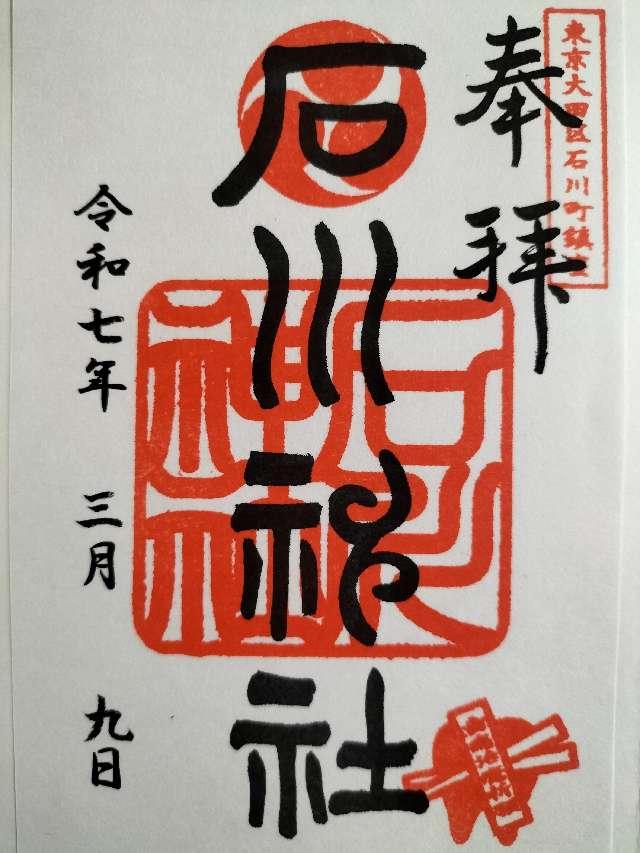 東京大田区石川町鎮座
奉拝
石川神社
令和七年 三月 九日